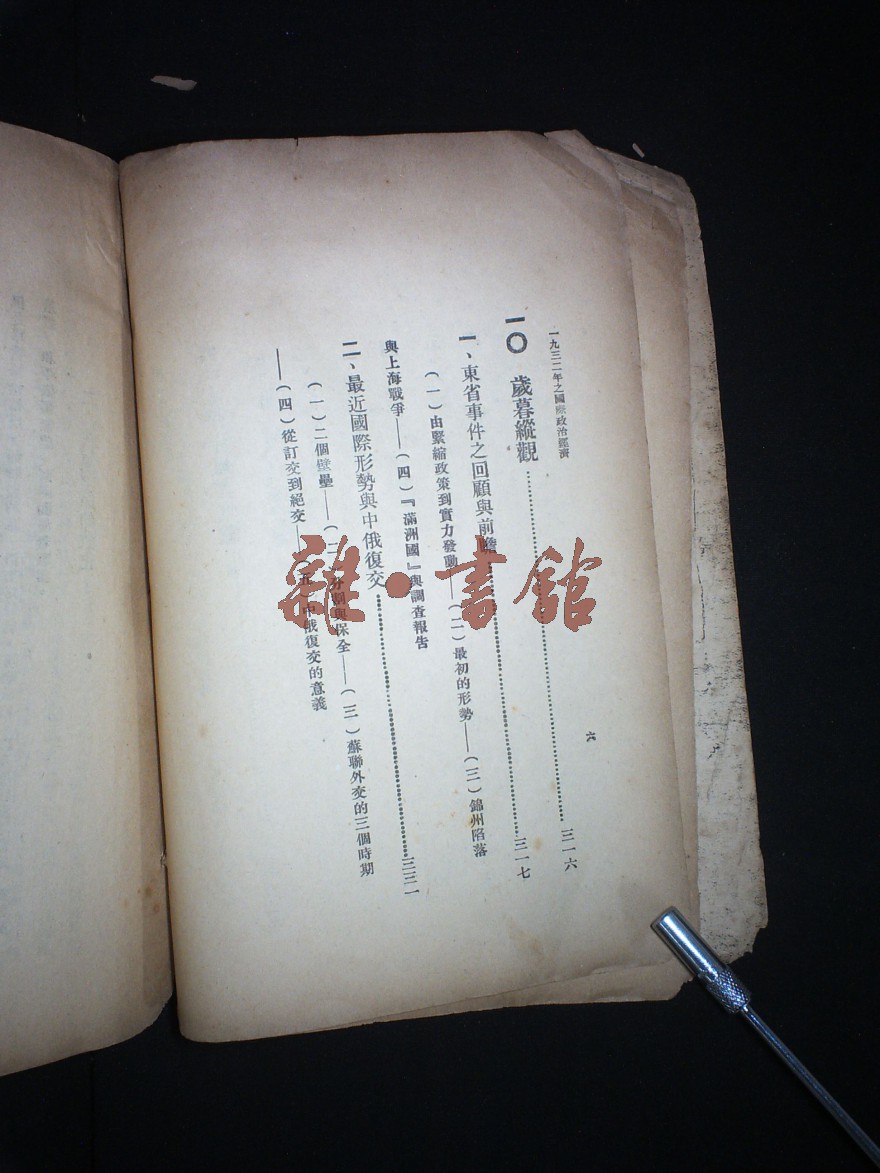 一九三二年之國際政治經濟 六
一〇 歲暮縱觀……三一六
一、東省事件之回顧與前瞻……三一七
（一）由緊縮政策到實力發動——（二）最初的形勢——（三）錦州陷落
與上海戰爭——（四）『滿洲國』與調查報告
二、最近國際形勢與中俄復交……三三一
（一）二個壁壘——（二）分割與保全——（三）蘇聯外交的三個時期
——（四）從訂交到絕交——（五）中俄復交的意義
雜·書館